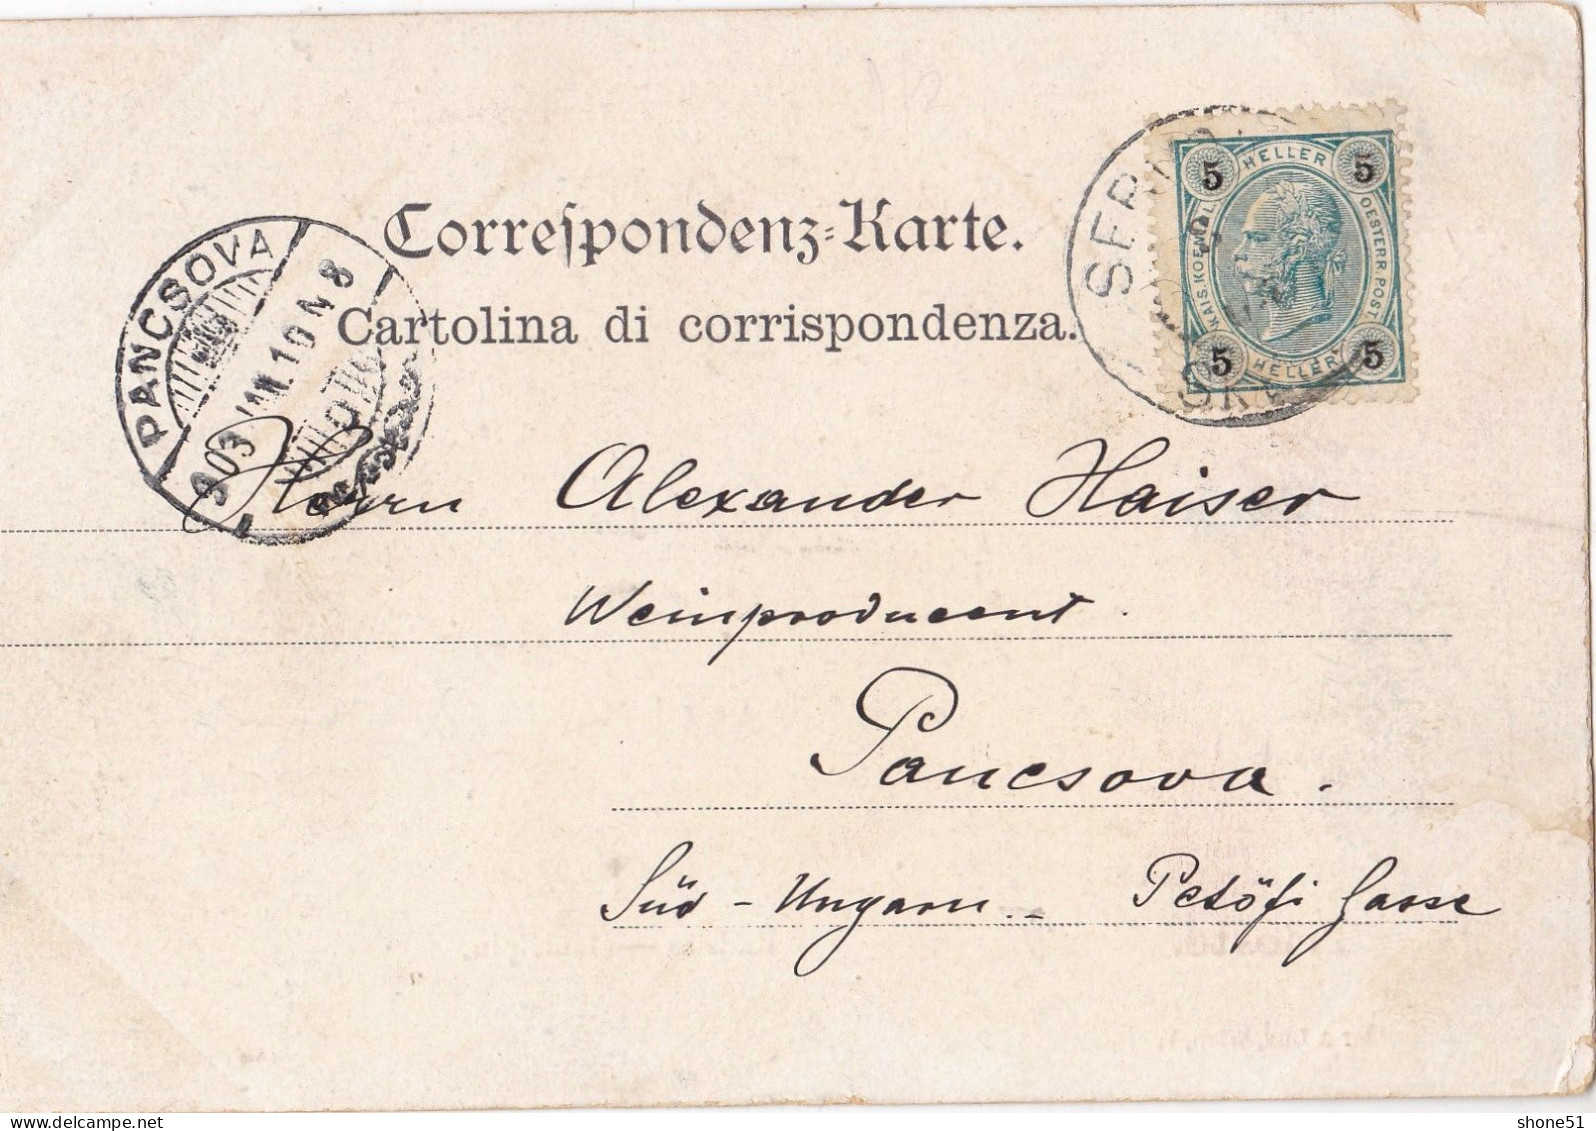 Correſpondenz-Karte.
Cartolina di corrispondenza.
PANCSOVA
903 JAN. 10 N 8
5 HELLER 5
KAIS. KOENIGL.
OESTERR. POST.
5 HELLER 5
Herrn Alexander Kaiser
Weinproducent.
Pancsova.
Süd-Ungarn.- Petöfi Gasse
shone51